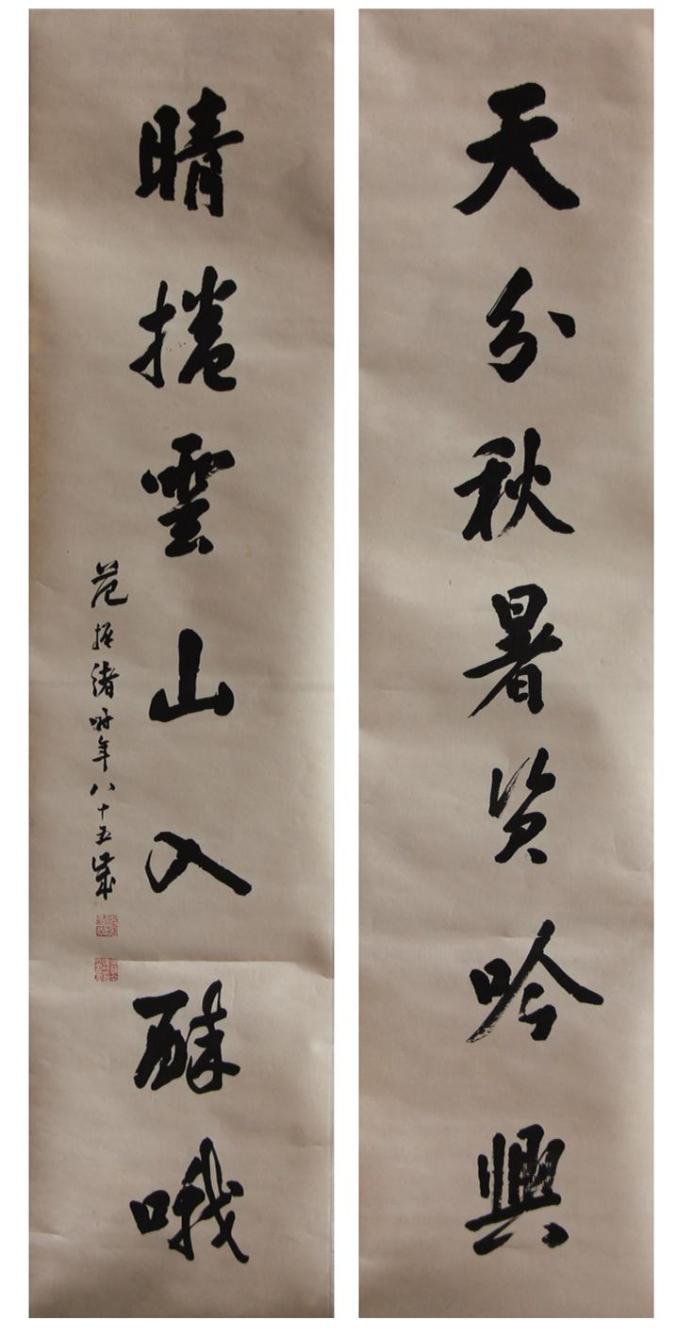 天分秋暑资吟興
晴捲雲山入醉哦
范振緒時年八十五歲